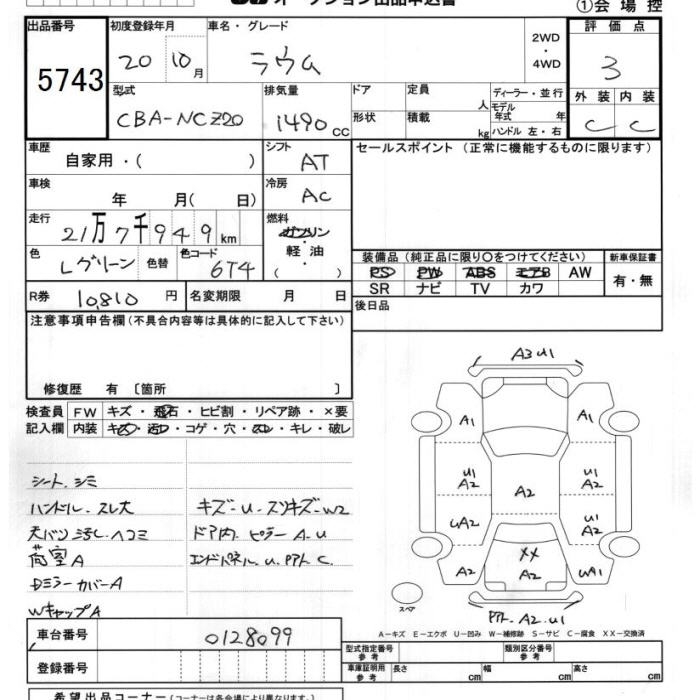 オークション出品申込書
①会場控
出品番号 初度登録年月 車名・グレード 評価点
5743 20 10月 ラウム 2WD・4WD 3
型式 排気量 ドア 定員 人 ディーラー・並行 外装 内装
CBA-NCZ20 1490 CC 形状 積載 kg モデル年式 年 ハンドル 左・右 C C
車歴 自家用・( ) シフト AT セールスポイント (正常に機能するものに限ります)
車検 年 月( 日) 冷房 AC
走行 21万7千949km 燃料 ガソリン 軽油 ( ・ )
色 Lグリーン 色替 色コード 6T4
装備品(純正品に限り○をつけてください) 新車保証書
PS PW ABS エアB AW 有・無
SR ナビ TV カワ
R券 10,810円 名変期限 月 日 後日品
注意事項申告欄(不具合内容等は具体的に記入して下さい)
修復歴 有 〔箇所 〕
検査員記入欄 FW キズ・飛石・ヒビ割・リペア跡・×要
内装 キズ・汚レ・コゲ・穴・スレ・キレ・破レ
シート、シミ
ハンドル、スレ大 キズ-U-スリキズ-W2
天バリ汚し、ヘコミ ドア内、ピラーA、U
荷室A エンドパネル、U、PアトC、
Dミラーカバー A
WキャップA
A3 U1
A1 A1
U1 A2 U1 A2
A2
UA2 U1 A2
XX
A2 A2 UA1
スペア
Pアト、A2、U1
A-キズ E-エクボ U-凹み W-補修跡 S-サビ C-腐食 XX-交換済
車台番号 0128099
登録番号
型式指定番号 参考 類別区分番号 参考
車庫証明用 参考 長さ cm 幅 cm 高さ cm
希望出品コーナー(コーナーは各会場により異なります)